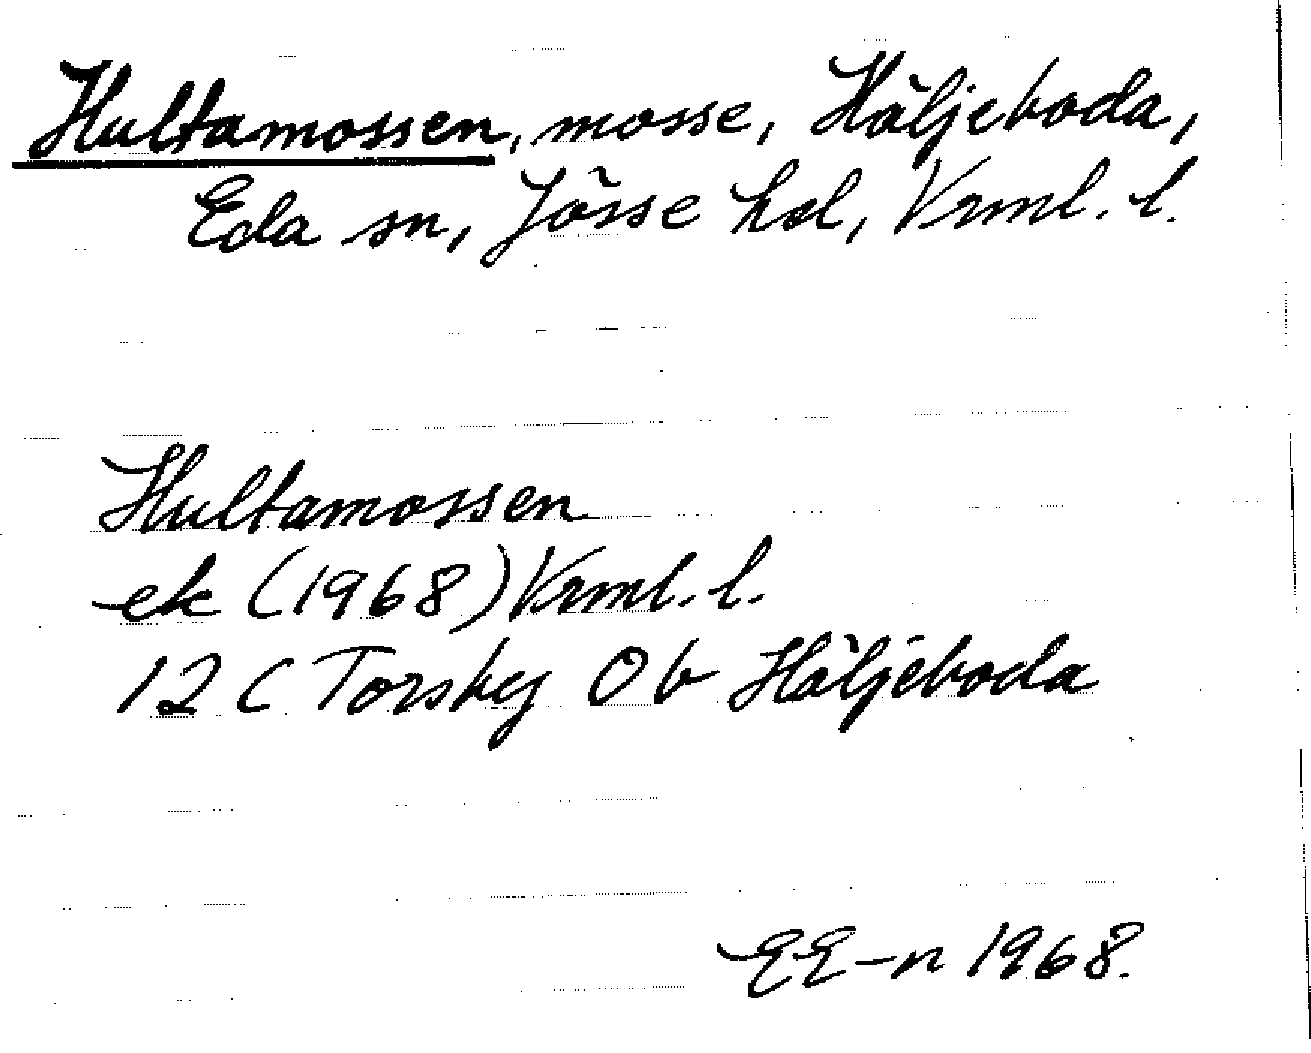 Hultamossen, mosse, Häljeboda,
Eda sn, Jösse hd, Vrml. l.
Hultamossen
ek (1968) Vrml. l.
12 C Torsby 0 b Häljeboda
EE-n 1968.